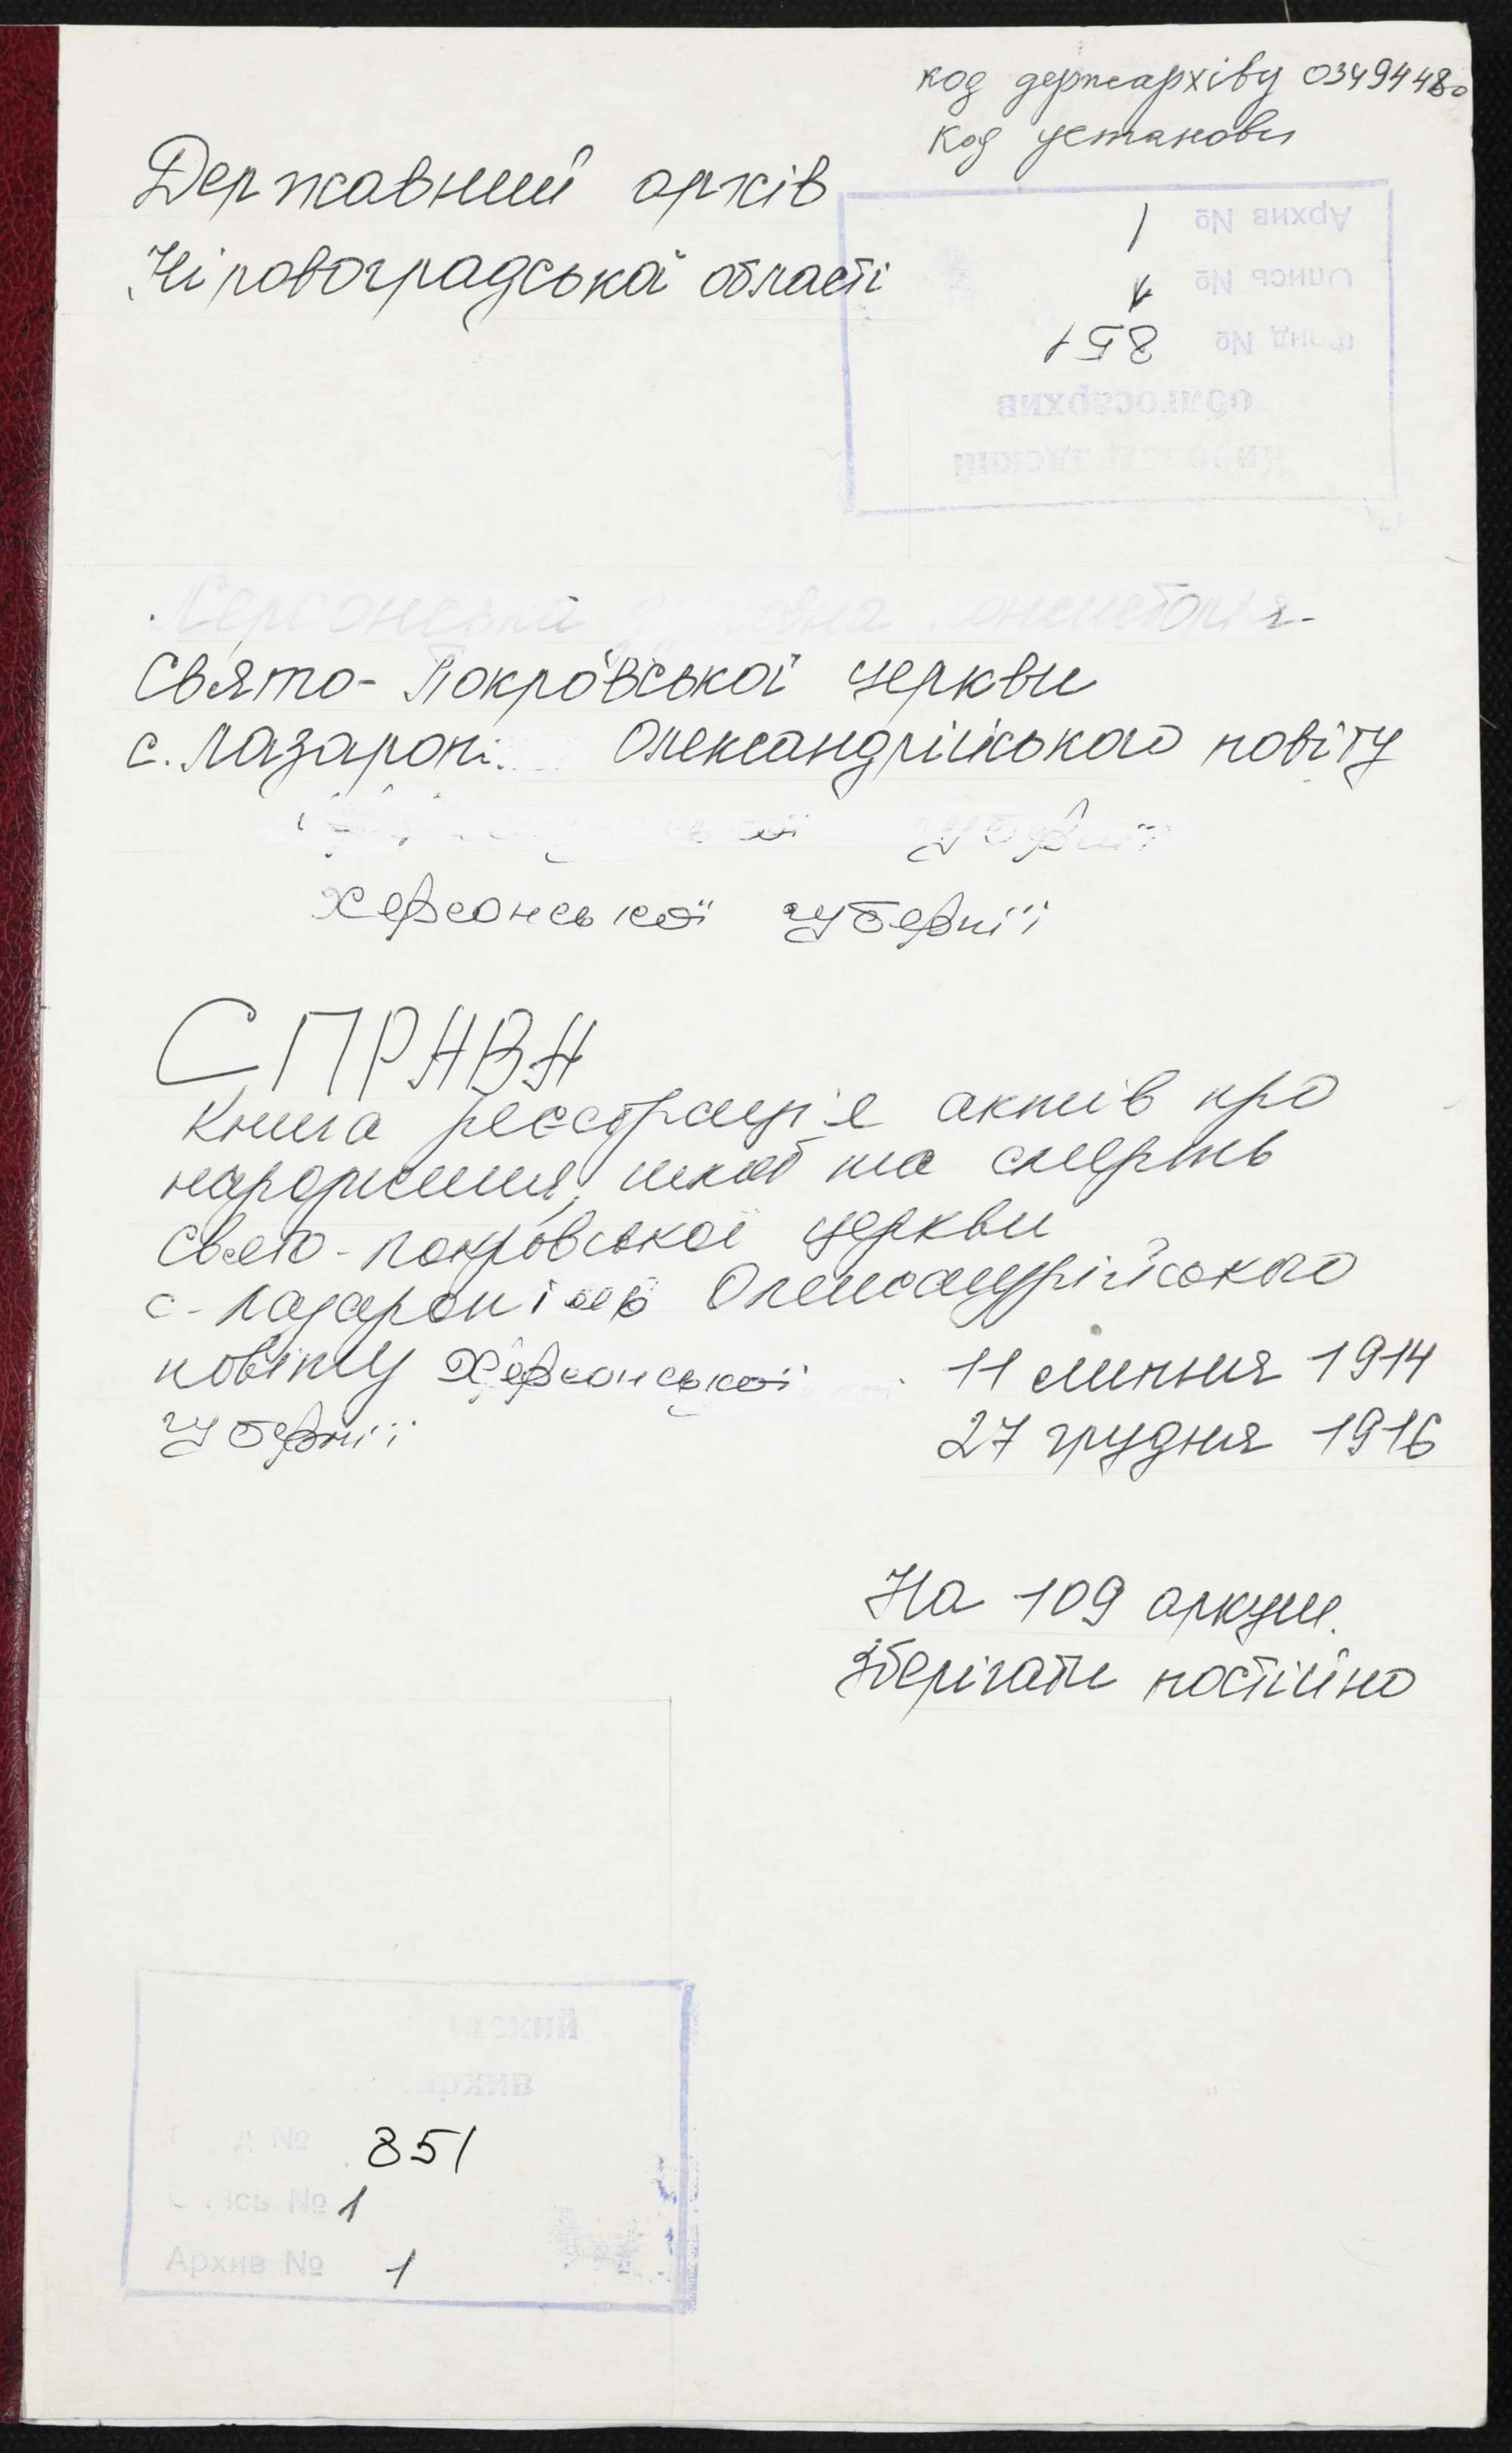 код держархіву 03494480
код установи
Державний архів
Кіровоградської області
Архив № 1
Опись № 1
Фонд № 851
облгосархив
Херсонська духовна консисторія
Свято-Покровської церкви
с. Лазаропі. Олександрійського повіту
губернії
Херсонської губернії
СПРАВА
Книга реєстрації актів про
народження, шлюб та смерть
Свято-Покровської церкви
с. Олександрійського
повіту Херсонської 11 липня 1914
губернії 27 грудня 1916
На 109 аркуш.
Зберігати постійно
851
№ 1
Архив № 1